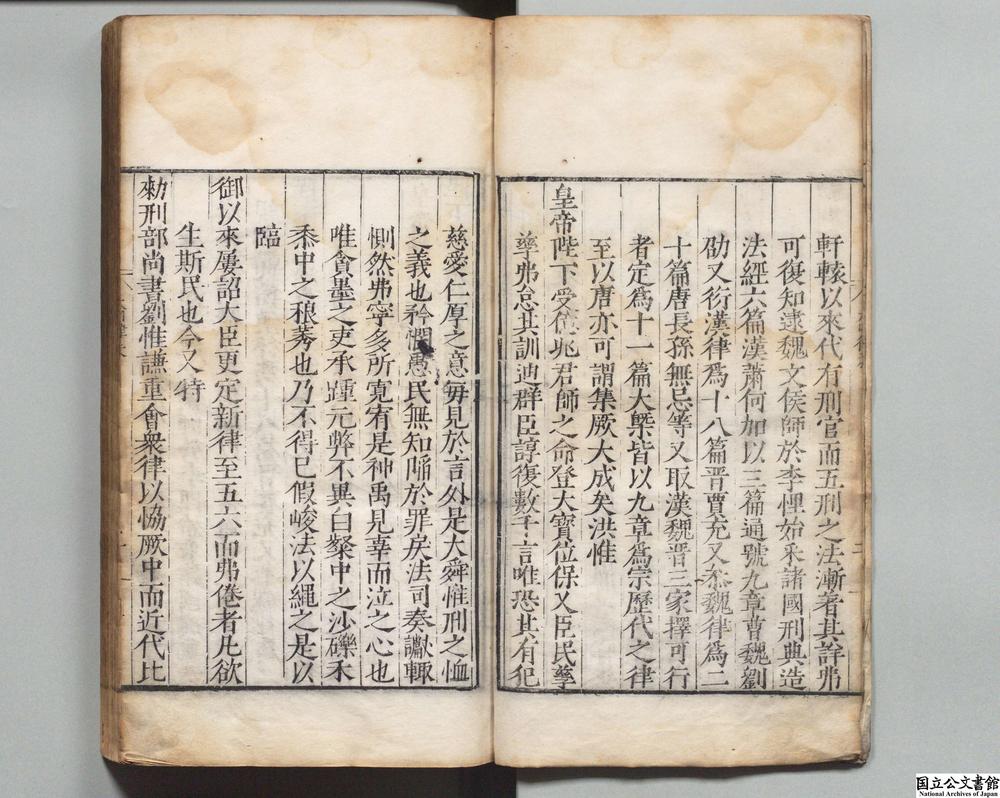 軒轅以來代有刑官而五刑之法漸著其詳弗
可復知逮魏文侯師於李悝始釆諸國刑典造
法經六篇漢蕭何加以三篇通號九章曹魏劉
劭又衍漢律爲十八篇晋賈充又叅魏律爲二
十篇唐長孫無忌等又取漢魏晋三家擇可行
者定爲十二篇大槩皆以九章爲宗歷代之律
至以唐亦可謂集厥大成矣洪惟
皇帝陛下受億兆君師之命登大寶位保乂臣民孳
孳弗怠其訓迪群臣諄復數千言唯恐其有犯
慈愛仁厚之意每見於言外是大舜惟刑之恤
之義也矜憫愚民無知陷於罪戾法司奏讞輙
惻然弗寧多所寛宥是神禹見辜而泣之心也
唯貪墨之吏承踵元弊不異白粲中之沙礫禾
黍中之稂莠也乃不得已假峻法以繩之是以
臨
御以來屢詔大臣更定新律至五六而弗倦者凡欲
生斯民也今又特
勑刑部尚書劉惟謙重會衆律以恊厥中而近代比
国立公文書館
National Archives of Japan